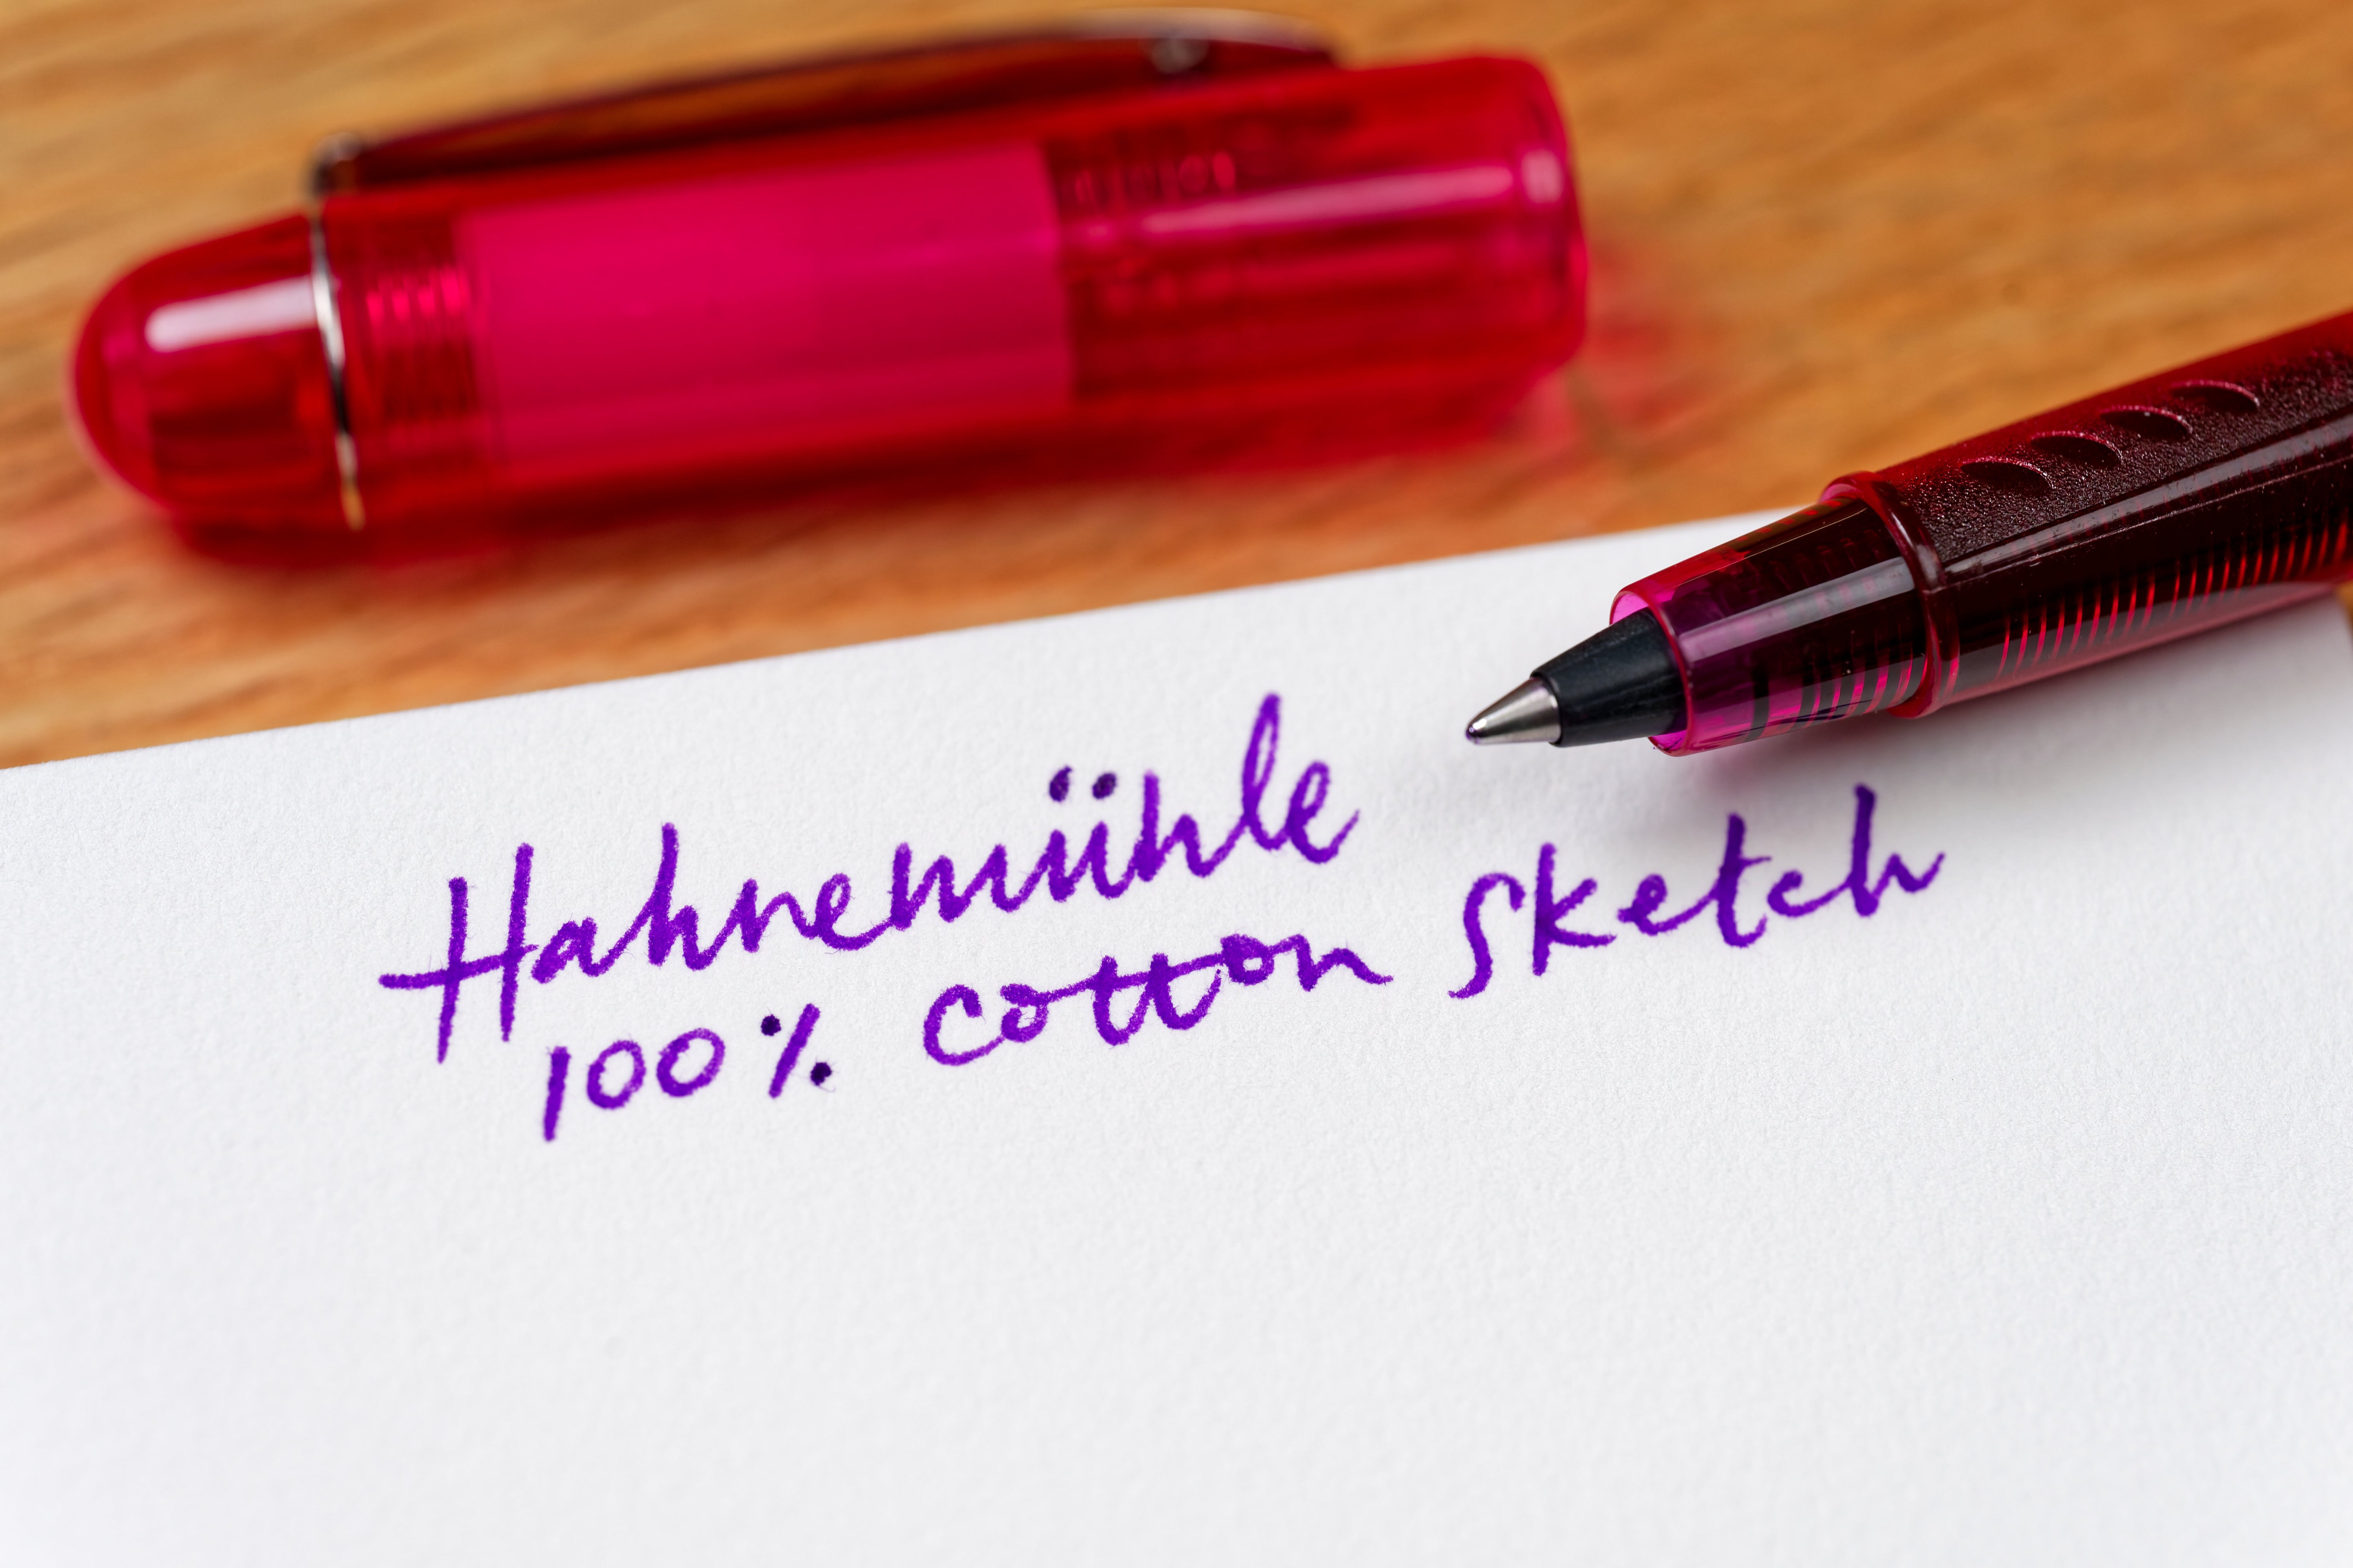 Hahnemühle
100% cotton sketch